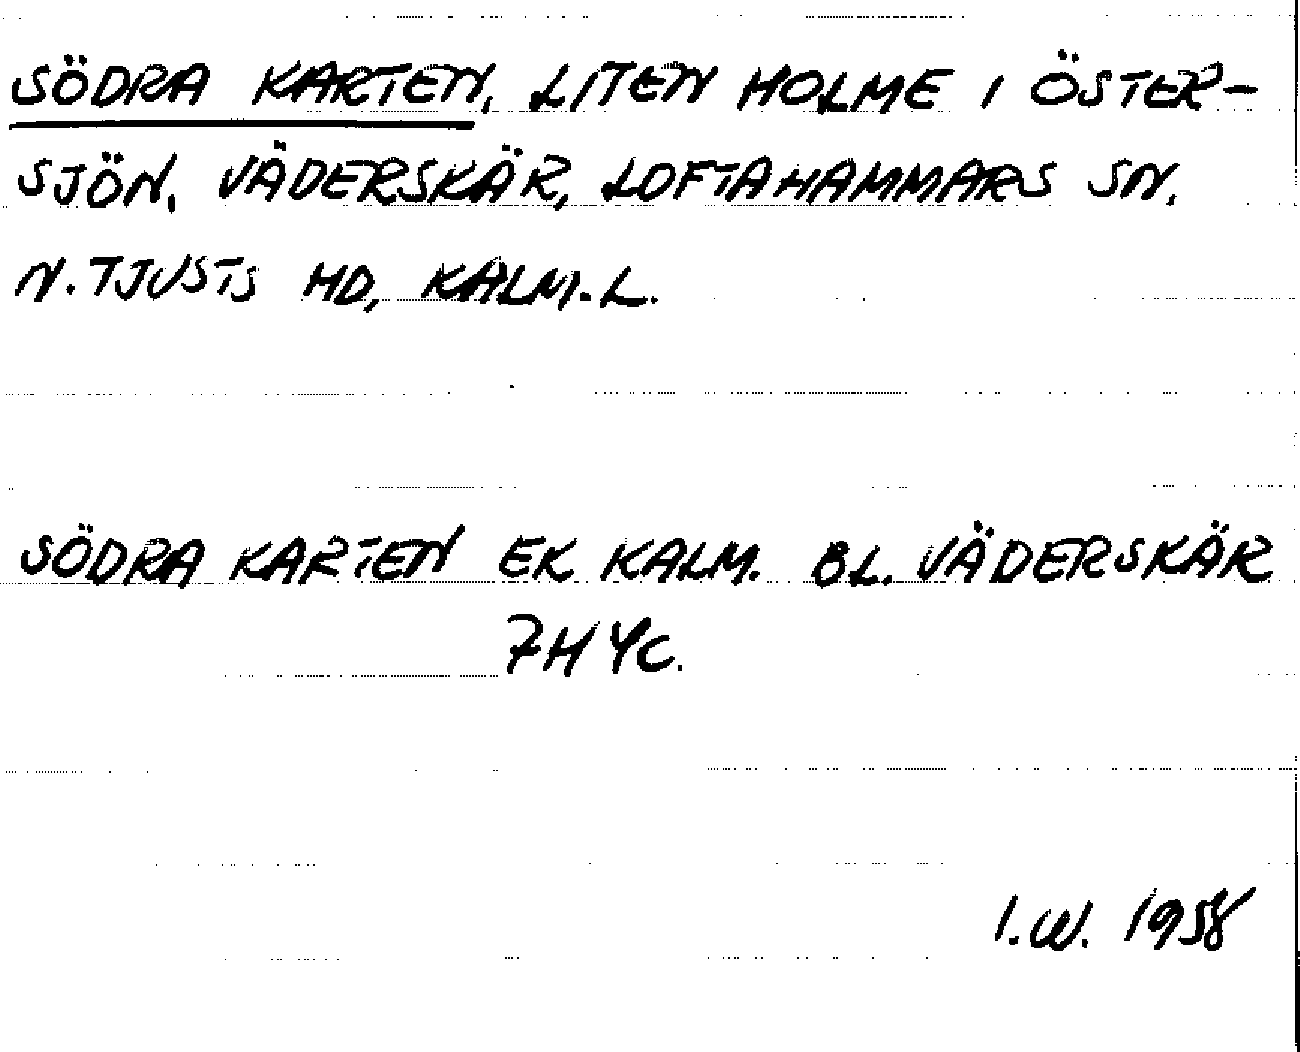 SÖDRA KARTEN, LITEN HOLME I ÖSTER-
SJÖN, VÄDERSKÄR, LOFTAHAMMARS SN,
N. TJUSTS HD, KALM. L.
SÖDRA KARTEN EK KALM. BL. VÄDERSKÄR
7H4c.
I.W. 1958